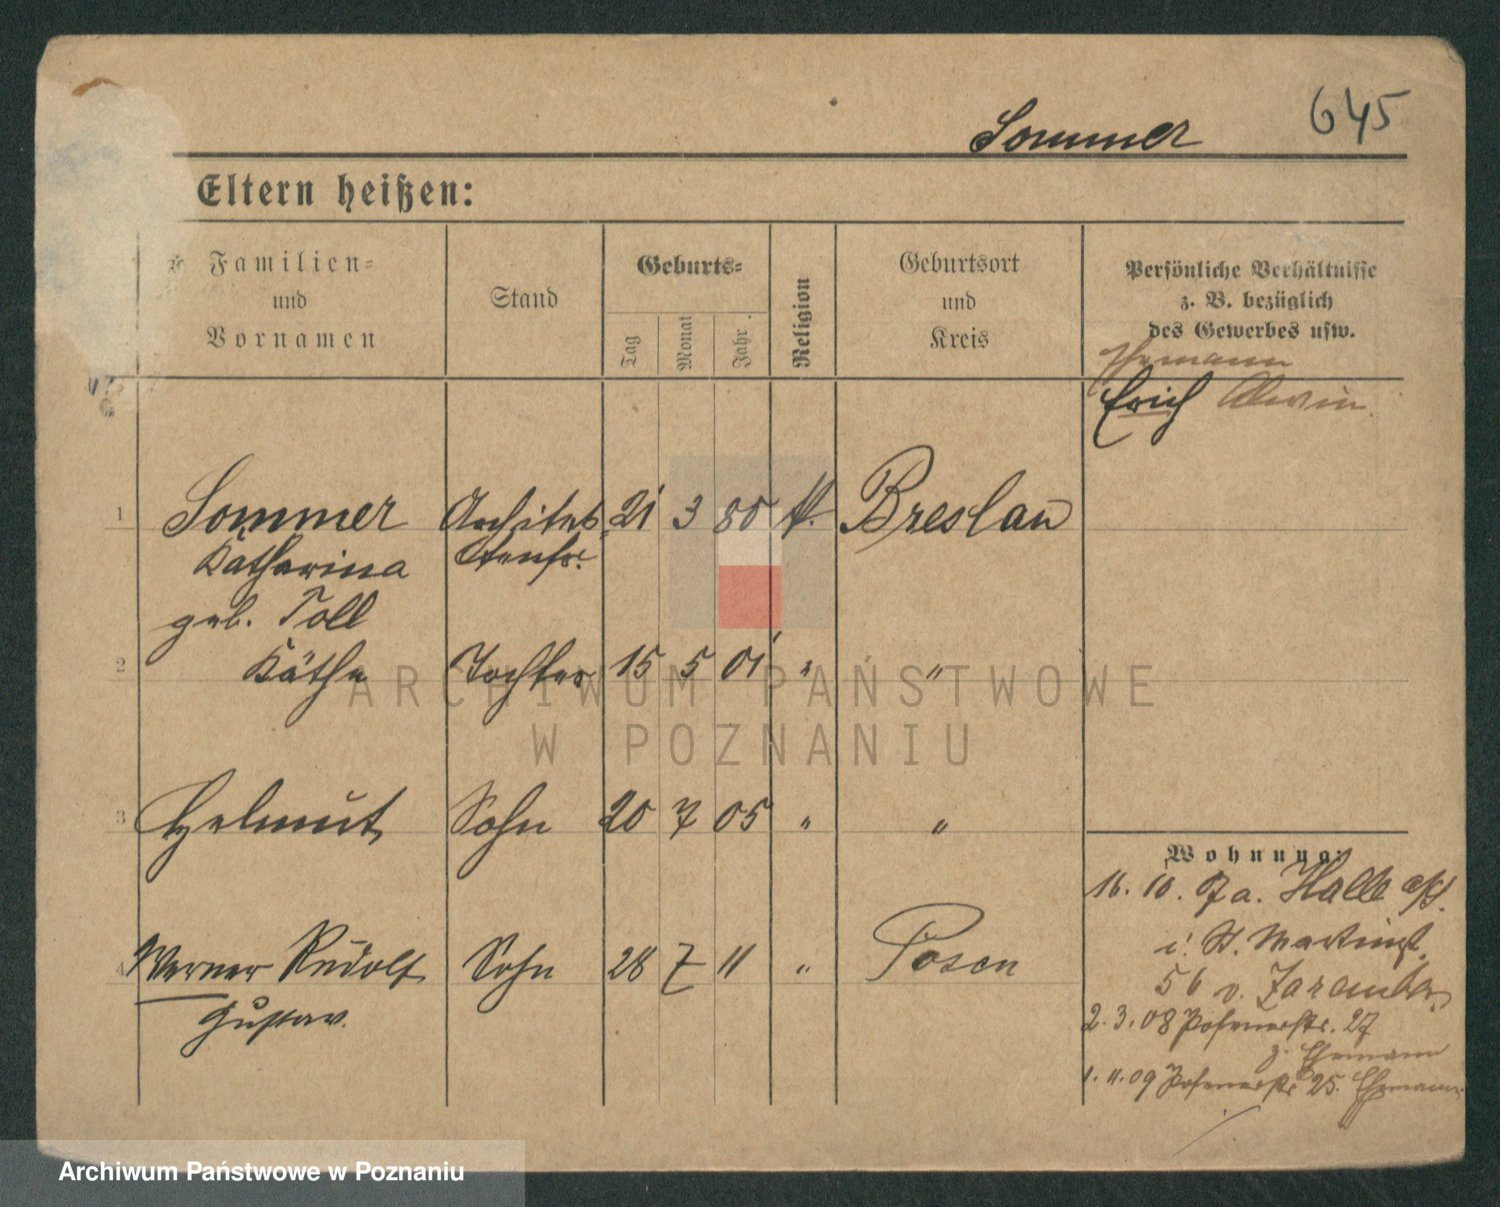 645
Sommer
Eltern heißen:
Familien-
und
Vornamen
Stand
Geburts-
Tag
Monat
Jahr
Religion
Geburtsort
und
Kreis
Persönliche Verhältnisse
z. B. bezüglich
des Gewerbes usw.
Ehemann
Erich Alwin
1 Sommer Architek 21 3 80 Breslau
Katharina tenfr.
geb. Toll
2 Käthe Tochter 15 5 01 " "
3 Helmut Sohn 20 7 05 " "
4 Werner Rudolf Sohn 28 7 11 " Posen
Gustav.
Wohnung:
16. 10. 07 a. Halle a/S.
i. St. Martinst.
56 v. Zaremba
2. 3. 08 Posenerstr. 27
z. Ehemann
1. 11. 09 Posenerstr 25. Ehemann.
ARCHIWUM PAŃSTWOWE
W POZNANIU
Archiwum Państwowe w Poznaniu